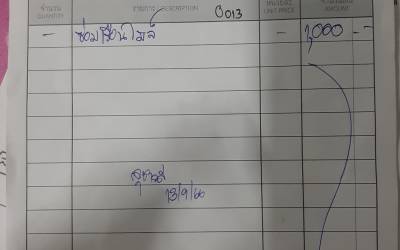 จำนวน รายการ / DESCRIPTION 0013 หน่วยละ จำนวนเงิน
QUANTITY UNIT PRICE AMOUNT
- ซ่อมเรือนไมล์ - 1,000 -
13/9/66